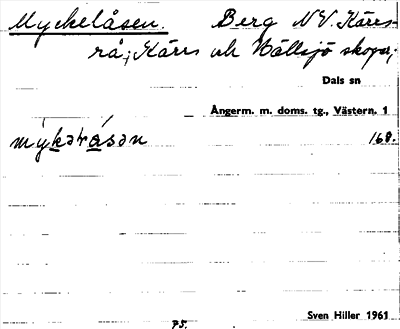 Myckelåsen. Berg NV. Kärrs-
rå; Kärrs och Hällsjö skogar;
Dals sn
Ångerm. m. doms. tg., Västern. 1
mýkərásən 168.
Sven Hiller 1961
P5.